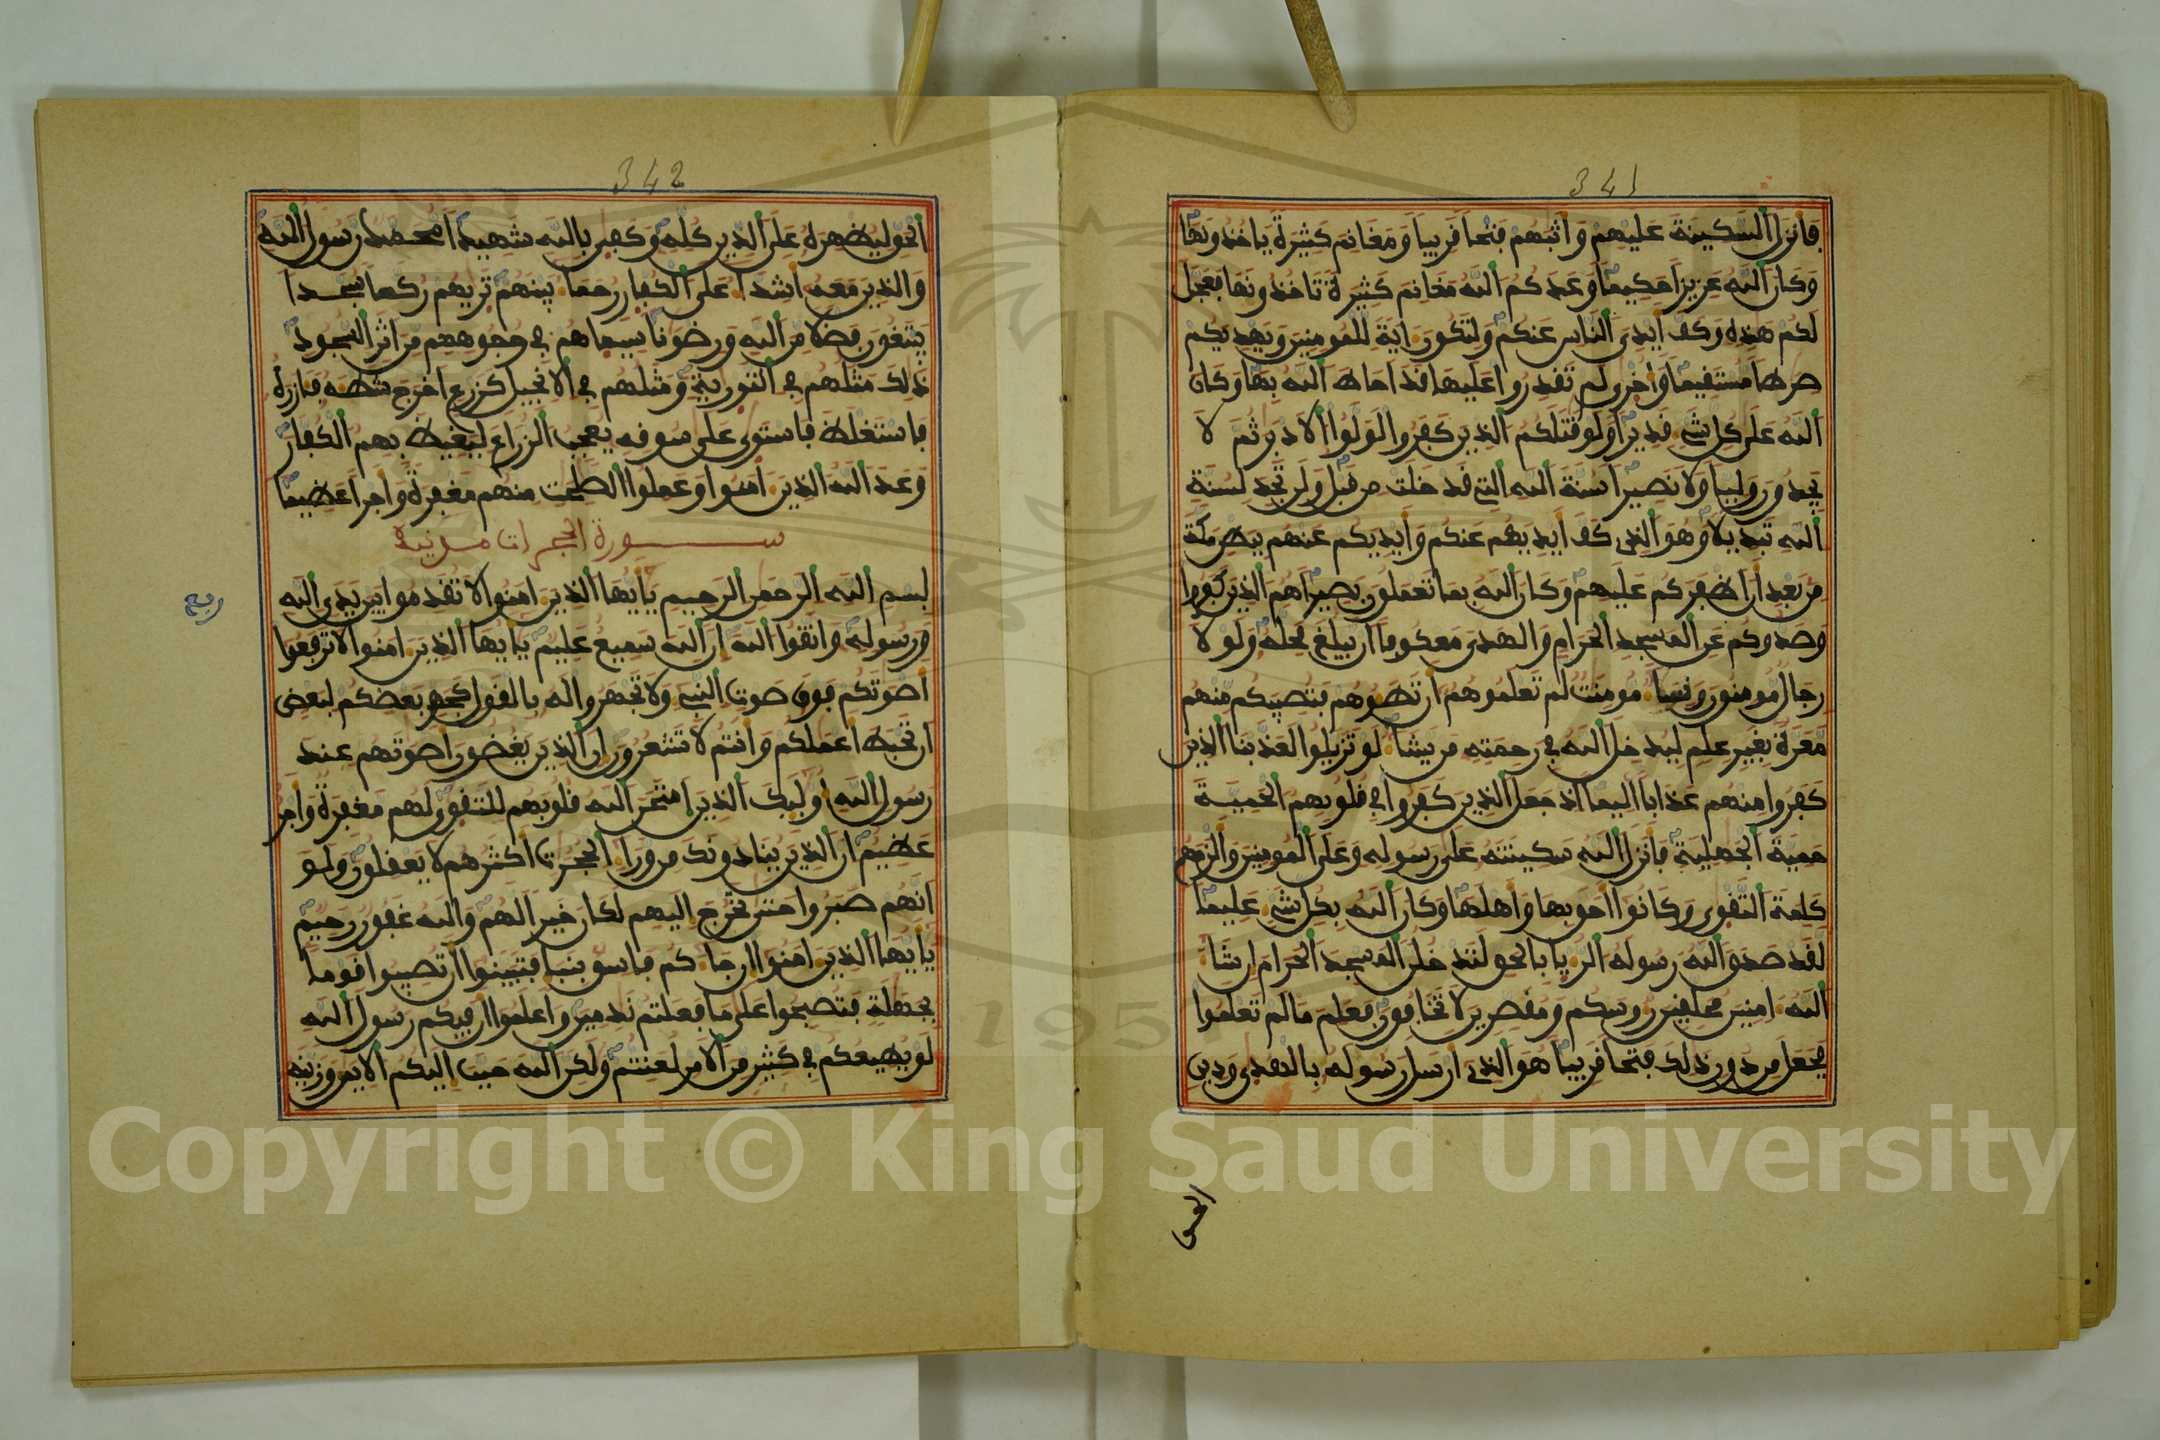 341
فانزل السكينة عليهم واثبهم فتحا قريبا ومغانم كثيرة ياخذونها
وكان الله عزيزا حكيما وعدكم الله مغانم كثيرة تاخذونها فعجل
لكم هذه وكف ايدي الناس عنكم ولتكون اية للمومنين ويهديكم
صرطا مستقيما واخرى لم تقدروا عليها قد احاط الله بها وكان
الله على كل شيء قديرا ولو قتلكم الذين كفروا لولوا الادبر ثم لا
يجدون وليا ولا نصيرا سنة الله التي قد خلت من قبل ولن تجد لسنة
الله تبديلا وهو الذي كف ايديهم عنكم وايديكم عنهم ببطن مكة
من بعد ان اظفركم عليهم وكان الله بما تعملون بصيرا هم الذين كفروا
وصدوكم عن المسجد الحرام والهدي معكوفا ان يبلغ محله ولولا
رجال مومنون ونساء مومنت لم تعلموهم ان تطوهم فتصيبكم منهم
معرة بغير علم ليدخل الله في رحمته من يشاء لو تزيلوا لعذبنا الذين
كفروا منهم عذابا اليما اذ جعل الذين كفروا في قلوبهم الحمية
حمية الجهلية فانزل الله سكينته على رسوله وعلى المومنين والزمهم
كلمة التقوى وكانوا احق بها واهلها وكان الله بكل شيء عليما
لقد صدق الله رسوله الريا بالحق لتدخلن المسجد الحرام ان شاء
الله امنين محلقين روسكم ومقصرين لا تخافون فعلم ما لم تعلموا
فجعل من دون ذلك فتحا قريبا هو الذي ارسل رسوله بالهدى ودين
الحق
342
الحق ليظهره على الدين كله وكفى بالله شهيدا محمد رسول الله
والذين معه اشداء على الكفار رحماء بينهم تريهم ركعا سجدا
يبتغون فضلا من الله ورضونا سيماهم في وجوههم من اثر السجود
ذلك مثلهم في التورية ومثلهم في الانجيل كزرع اخرج شطه فازره
فاستغلظ فاستوى على سوقه يعجب الزراع ليغيظ بهم الكفار
وعد الله الذين امنوا وعملوا الصلحت منهم مغفرة واجرا عظيما
سورة الحجرات مدنية
بسم الله الرحمن الرحيم يايها الذين امنوا لا تقدموا بين يدي الله
ورسوله واتقوا الله ان الله سميع عليم يايها الذين امنوا لا ترفعوا
اصوتكم فوق صوت النبي ولا تجهروا له بالقول كجهر بعضكم لبعض
ان تحبط اعملكم وانتم لا تشعرون ان الذين يغضون اصوتهم عند
رسول الله اوليك الذين امتحن الله قلوبهم للتقوى لهم مغفرة واجر
عظيم ان الذين ينادونك من وراء الحجرت اكثرهم لا يعقلون ولو
انهم صبروا حتى تخرج اليهم لكان خيرا لهم والله غفور رحيم
يايها الذين امنوا ان جاءكم فاسق بنبا فتبينوا ان تصيبوا قوما
بجهلة فتصبحوا على ما فعلتم ندمين واعلموا ان فيكم رسول الله
لو يطيعكم في كثير من الامر لعنتم ولكن الله حبب اليكم الايمن وزينه
ربع
1957
Copyright © King Saud University